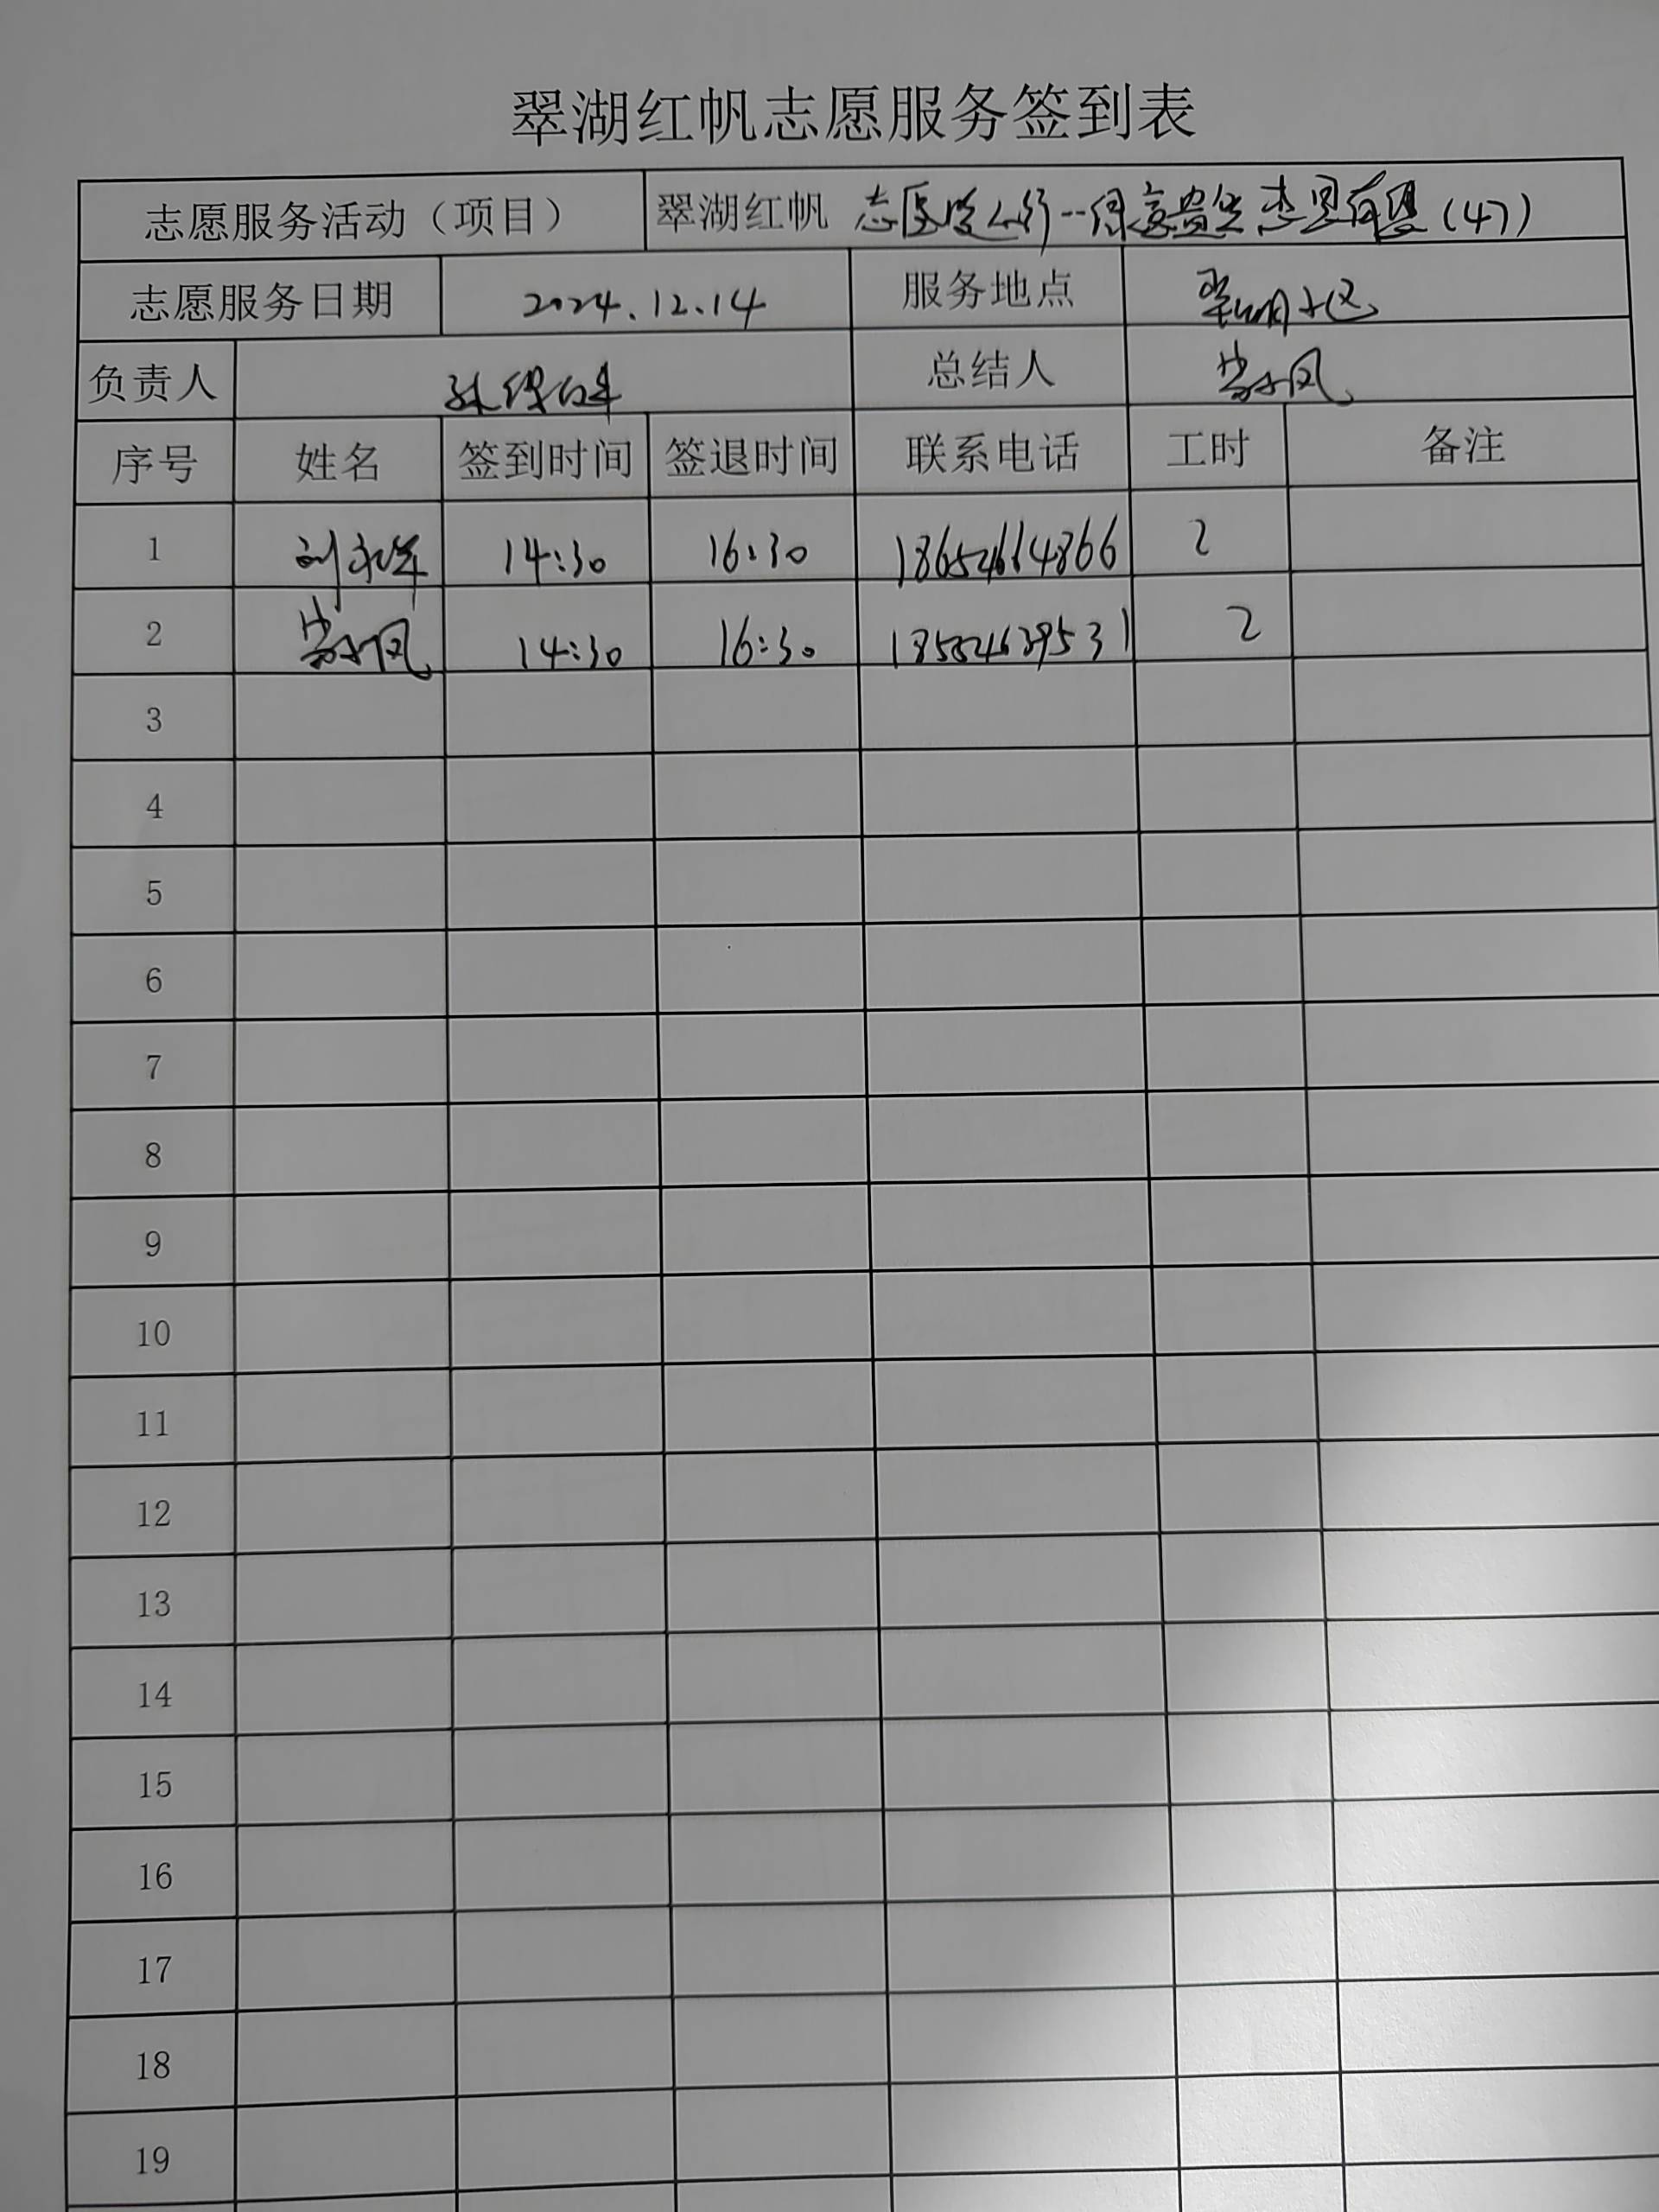 翠湖红帆志愿服务签到表
志愿服务活动（项目） 翠湖红帆 (47)
志愿服务日期 2024.12.14 服务地点 翠湖小区
负责人 总结人
序号 姓名 签到时间 签退时间 联系电话 工时 备注
1 刘永军 14:30 16:30 18652614866 2
2 14:30 16:30 18552639531 2
3
4
5
6
7
8
9
10
11
12
13
14
15
16
17
18
19